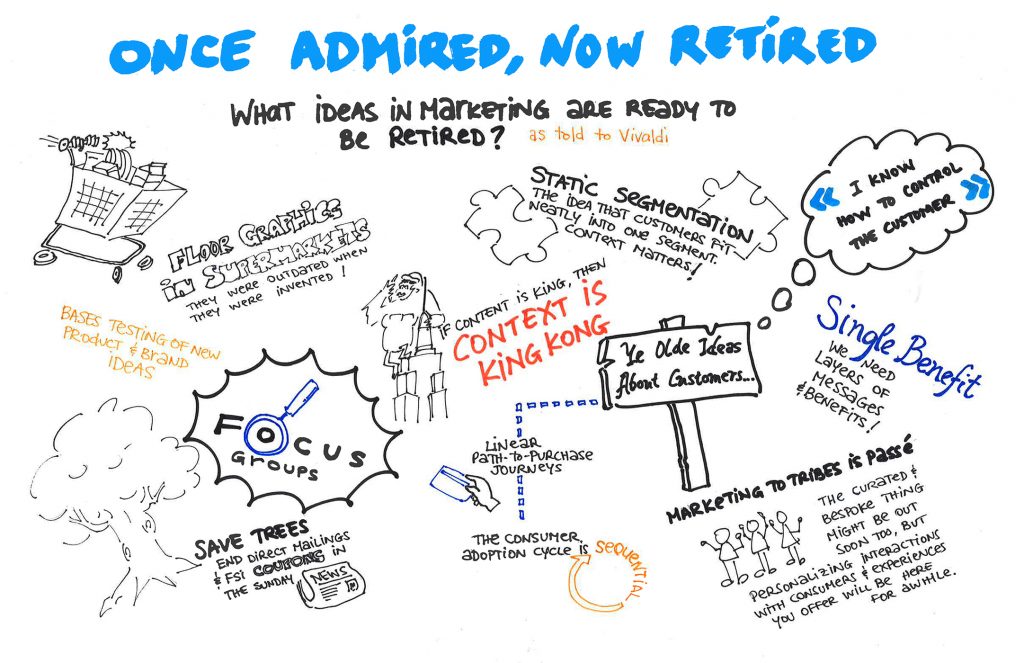 ONCE ADMIRED, NOW RETIRED
WHAT IDEAS IN MARKETING ARE READY TO
BE RETIRED?
as told to Vivaldi
FLOOR GRAPHICS
IN SUPERMARKETS
THEY WERE OUTDATED WHEN
THEY WERE INVENTED!
STATIC SEGMENTATION
THE IDEA THAT CUSTOMERS FIT
NEATLY INTO ONE SEGMENT.
CONTEXT MATTERS!
« I KNOW
HOW TO CONTROL
THE CUSTOMER »
BASES TESTING OF NEW
PRODUCT & BRAND
IDEAS
IF CONTENT IS KING, THEN
CONTEXT IS
KING KONG
Ye Olde Ideas
About Customers...
Single Benefit
WE NEED
LAYERS OF
MESSAGES
& BENEFITS!
FOCUS
GROUPS
LINEAR
PATH-TO-PURCHASE
JOURNEYS
MARKETING TO TRIBES IS PASSÉ
THE CURATED &
BESPOKE THING
MIGHT BE OUT
SOON TOO, BUT
PERSONALIZING INTERACTIONS
WITH CONSUMERS & EXPERIENCES
YOU OFFER WILL BE HERE
FOR AWHILE.
SAVE TREES
END DIRECT MAILINGS
& FSI COUPONS IN
THE SUNDAY
NEWS
THE CONSUMER
ADOPTION CYCLE IS
SEQUENTIAL